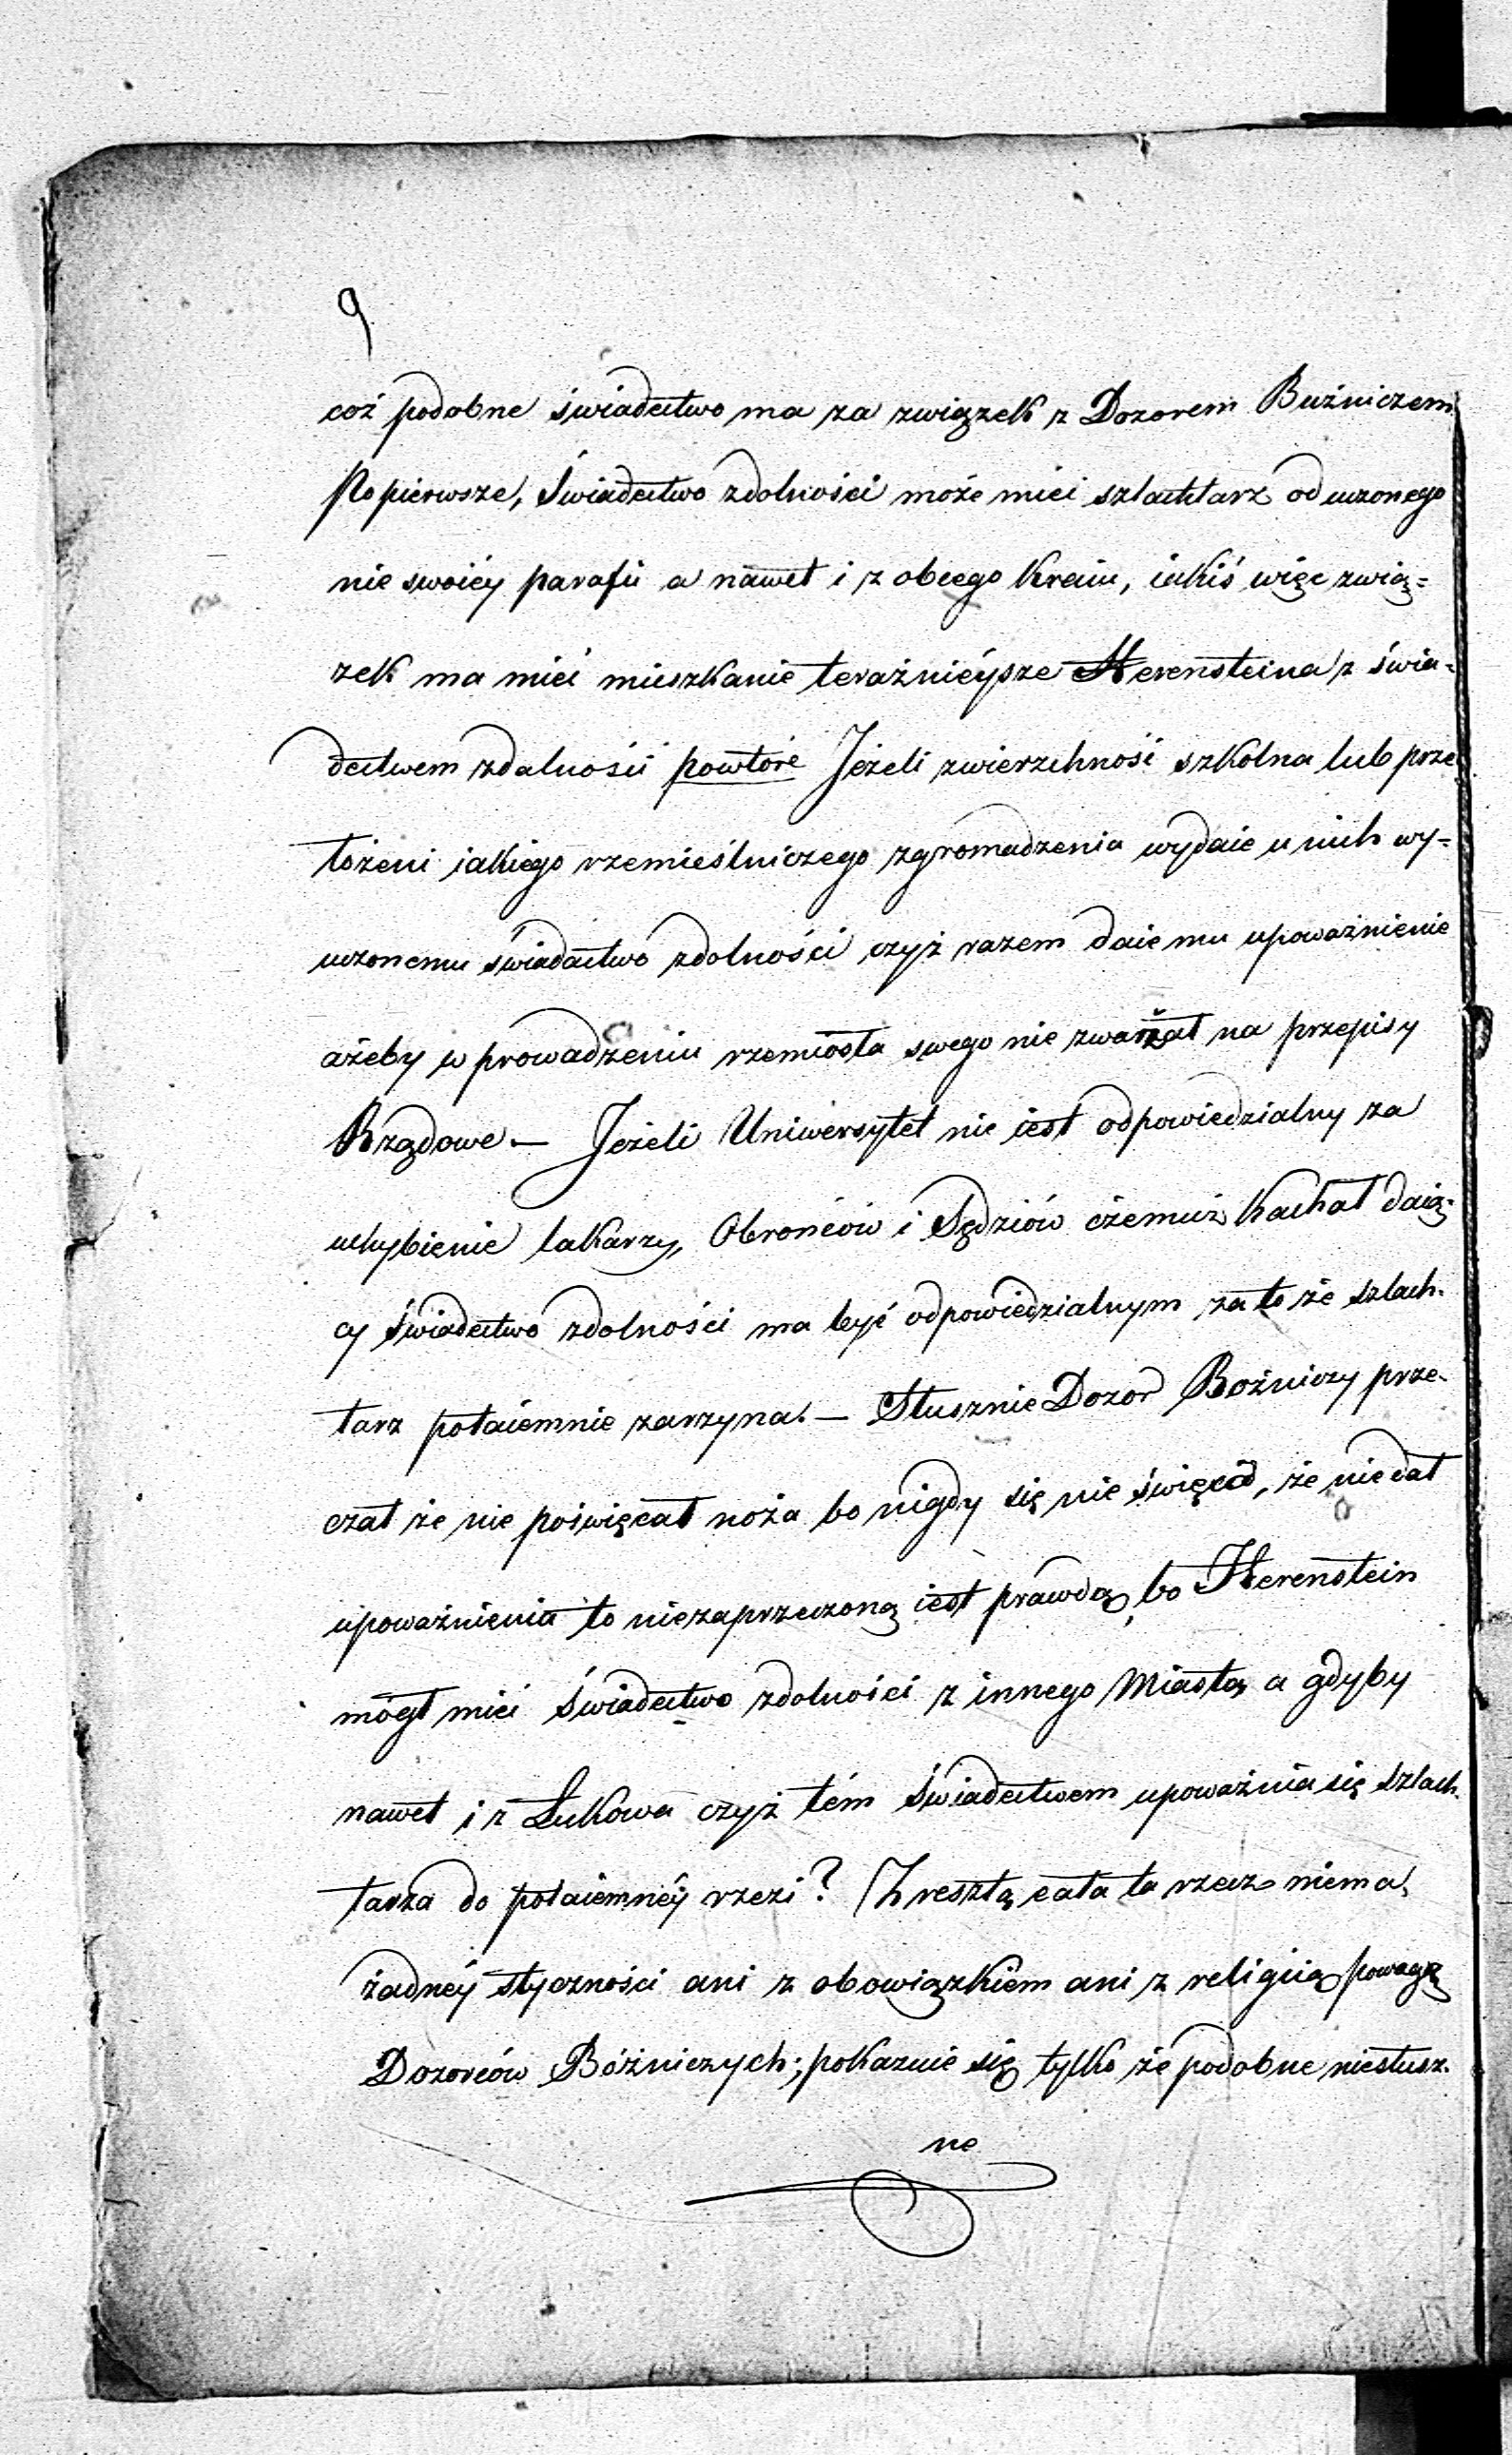 9
coż podobne świadectwo ma za związek z Dozorem Bużniczem
Popierwsze, Świadectwo zdolności może mieć szlachtarz od uczonego
nie swoiéy parafii a nawet i z obcego kraiu, iakiś więc zwią=
zek ma mieć mieszkanie teraźnieysze Herensteina z świa=
dectwem zdalności powtóre Jeżeli zwierzchność szkolna lub prze
łożeni iakiego rzemieślniczego zgromadzenia wydaie u nich wy=
uczonemu świadectwo zdolności czyż razem daie mu upoważnienie
ażeby w prowadzeniu rzemiosła swego nie zważał na przepisy
Rządowe — Jeżeli Uniwersytet nie iest odpowiedzialny za
uchybienie lakarzy, Obrońców i Sędziów czemuż Kachał daią=
cy świadectwo zdolności ma być odpowiedzialnym za to że szlach-
tarz potaiemnie zarzyna. — Słusznie Dozor Bożniczy prze-
czał że nie poświęcał noża bo nigdy się nie święcił, że nie dał
upoważnienia to niezaprzeczoną iest prawdą, bo Herenstein
mógł mieć świadectwo zdolności z innego Miasta, a gdyby
nawet i z Łukowa czyż tém świadectwem upoważnia się szlach-
tarza do potaiemnéy rzezi? Zresztą cała ta rzecz niema
żadnéy styczności ani z obowiązkiem ani z religiią powagą
Dozorców Bóżniczych; pokazuie się tylko że podobne niesłusz-
ne